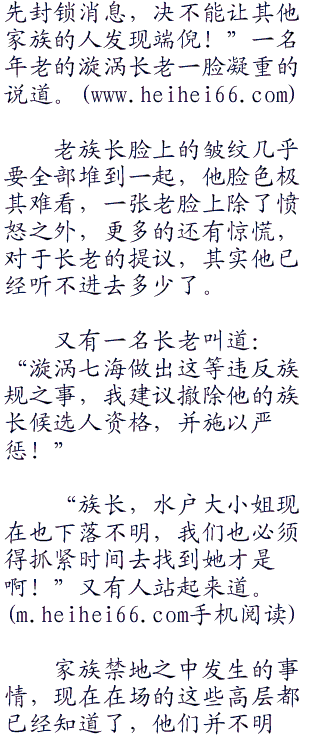 先封锁消息，决不能让其他
家族的人发现端倪！”一名
年老的漩涡长老一脸凝重的
说道。(www.heihei66.com)
老族长脸上的皱纹几乎
要全部堆到一起，他脸色极
其难看，一张老脸上除了愤
怒之外，更多的还有惊慌，
对于长老的提议，其实他已
经听不进去多少了。
又有一名长老叫道：
“漩涡七海做出这等违反族
规之事，我建议撤除他的族
长候选人资格，并施以严
惩！”
“族长，水户大小姐现
在也下落不明，我们也必须
得抓紧时间去找到她才是
啊！”又有人站起来道。
(m.heihei66.com手机阅读)
家族禁地之中发生的事
情，现在在场的这些高层都
已经知道了，他们并不明